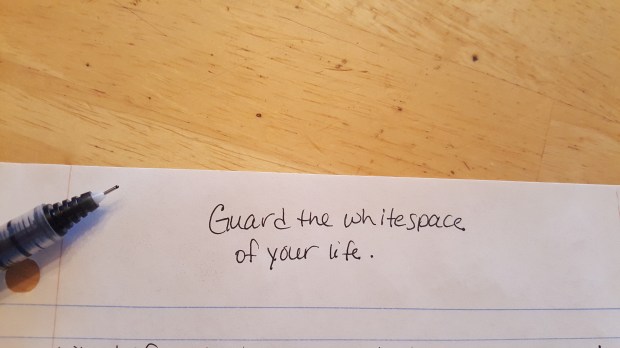 Guard the whitespace
of your life.